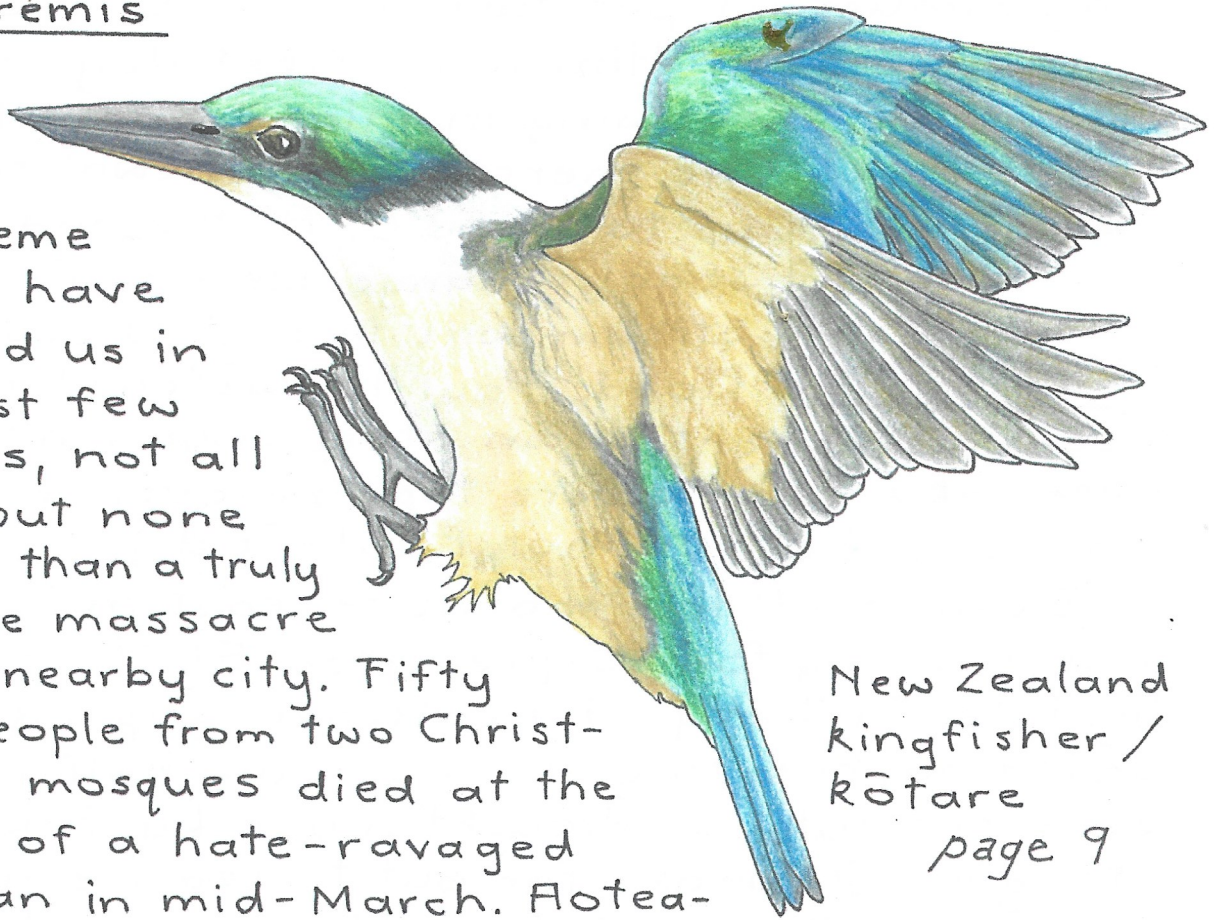 remis
eme
have
d us in
st few
s, not all
out none
than a truly
e massacre
nearby city. Fifty
eople from two Christ-
mosques died at the
of a hate-ravaged
an in mid-March. Aotea-
New Zealand
kingfisher /
kōtare
page 9